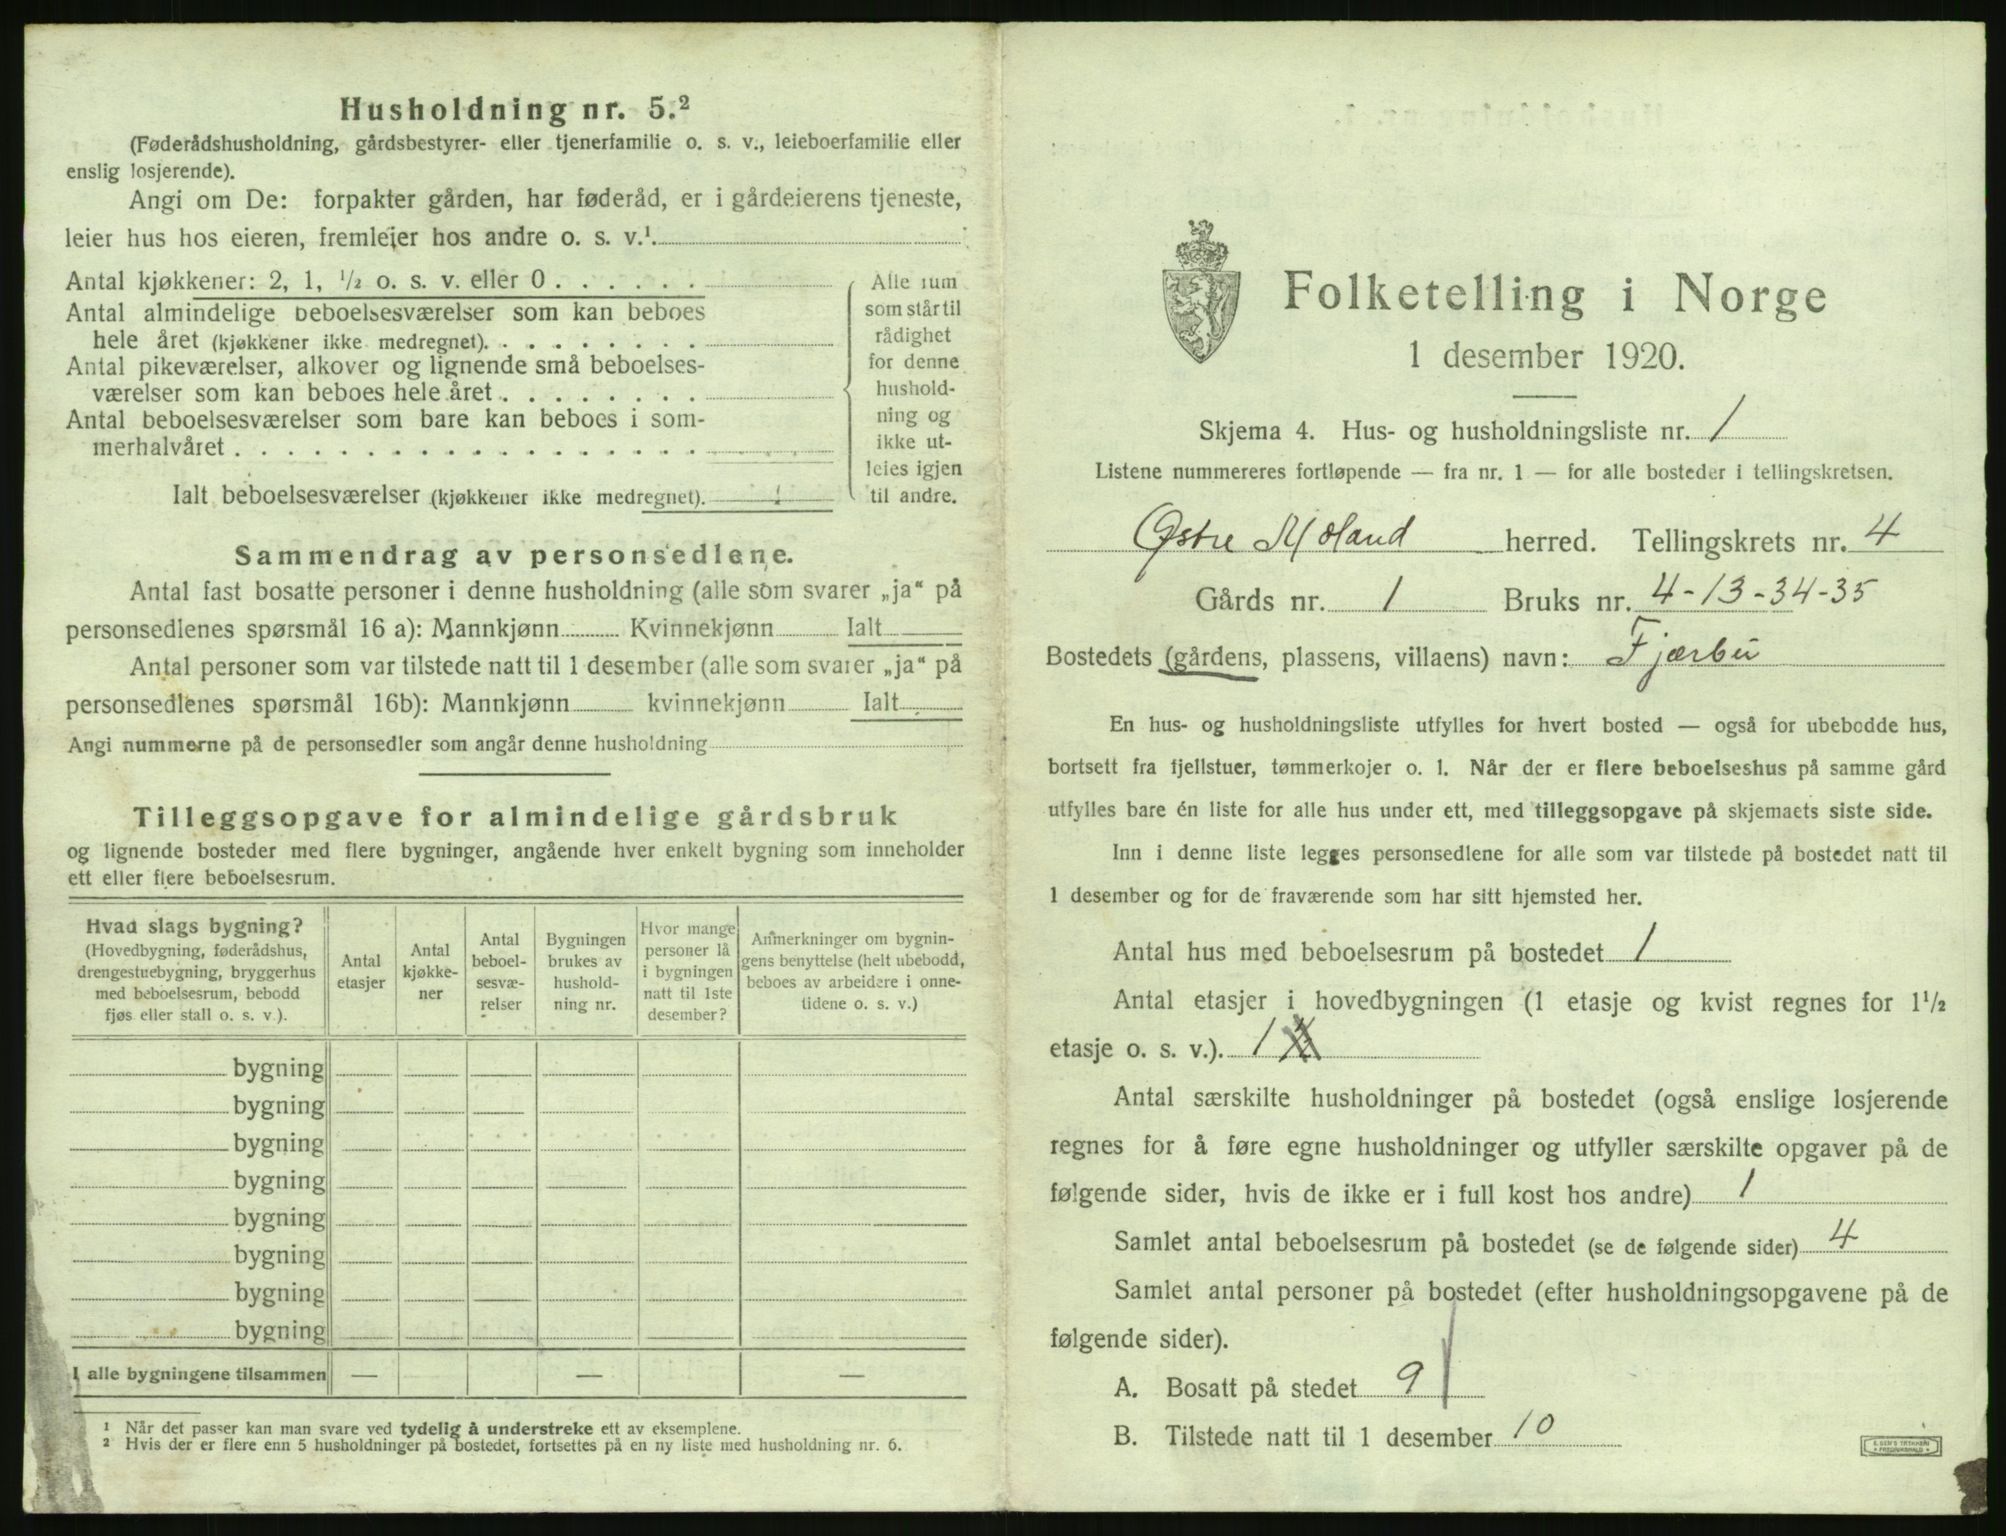 Husholdning nr. 5.²
(Føderådshusholdning, gårdsbestyrer- eller tjenerfamilie o. s. v., leieboerfamilie eller
enslig losjerende).
Angi om De: forpakter gården, har føderåd, er i gårdeierens tjeneste,
leier hus hos eieren, fremleier hos andre o. s. v.¹
Antal kjøkkener: 2, 1, ¹/₂ o. s. v. eller 0 . . . . . .
Antal almindelige beboelsesværelser som kan beboes
hele året (kjøkkener ikke medregnet). . . . . . . . .
Antal pikeværelser, alkover og lignende små beboelses-
værelser som kan beboes hele året . . . . . . . .
Antal beboelsesværelser som bare kan beboes i som-
merhalvåret . . . . . . . . . . . . . . . . . .
Ialt beboelsesværelser (kjøkkener ikke medregnet).
Alle rum
som står til
rådighet
for denne
hushold-
ning og
ikke ut-
leies igjen
til andre.
Sammendrag av personsedlene.
Antal fast bosatte personer i denne husholdning (alle som svarer „ja“ på
personsedlenes spørsmål 16 a): Mannkjønn Kvinnekjønn Ialt
Antal personer som var tilstede natt til 1 desember (alle som svarer „ja“ på
personsedlenes spørsmål 16b): Mannkjønn kvinnekjønn Ialt
Angi nummerne på de personsedler som angår denne husholdning
Tilleggsopgave for almindelige gårdsbruk
og lignende bosteder med flere bygninger, angående hver enkelt bygning som inneholder
ett eller flere beboelsesrum.
Hvad slags bygning?
(Hovedbygning, føderådshus,
drengestuebygning, bryggerhus
med beboelsesrum, bebodd
fjøs eller stall o. s. v.).
Antal
etasjer
Antal
kjøkke-
ner
Antal
beboel-
sesvæ-
relser
Bygningen
brukes av
hushold-
ning nr.
Hvor mange
personer lå
i bygningen
natt til 1ste
desember?
Anmerkninger om bygnin-
gens benyttelse (helt ubebodd,
beboes av arbeidere i onne-
tidene o. s. v.)
bygning
bygning
bygning
bygning
bygning
bygning
bygning
bygning
I alle bygningene tilsammen — — —
¹ Når det passer kan man svare ved tydelig å understreke ett av eksemplene.
² Hvis der er flere enn 5 husholdninger på bostedet, fortsettes på en ny liste med husholdning nr. 6.
Folketelling i Norge
1 desember 1920.
Skjema 4. Hus- og husholdningsliste nr. 1
Listene nummereres fortløpende — fra nr. 1 — for alle bosteder i tellingskretsen.
Østre Moland herred. Tellingskrets nr. 4
Gårds nr. 1 Bruks nr. 4-13-34-35
Bostedets (gårdens, plassens, villaens) navn: Fjærbu
En hus- og husholdningsliste utfylles for hvert bosted — også for ubebodde hus,
bortsett fra fjellstuer, tømmerkojer o. l. Når der er flere beboelseshus på samme gård
utfylles bare én liste for alle hus under ett, med tilleggsopgave på skjemaets siste side.
Inn i denne liste legges personsedlene for alle som var tilstede på bostedet natt til
1 desember og for de fraværende som har sitt hjemsted her.
Antal hus med beboelsesrum på bostedet 1
Antal etasjer i hovedbygningen (1 etasje og kvist regnes for 1¹/₂
etasje o. s. v.). 1
Antal særskilte husholdninger på bostedet (også enslige losjerende
regnes for å føre egne husholdninger og utfyller særskilte opgaver på de
følgende sider, hvis de ikke er i full kost hos andre) 1
Samlet antal beboelsesrum på bostedet (se de følgende sider) 4
Samlet antal personer på bostedet (efter husholdningsopgavene på de
følgende sider).
A. Bosatt på stedet 9
B. Tilstede natt til 1 desember 10